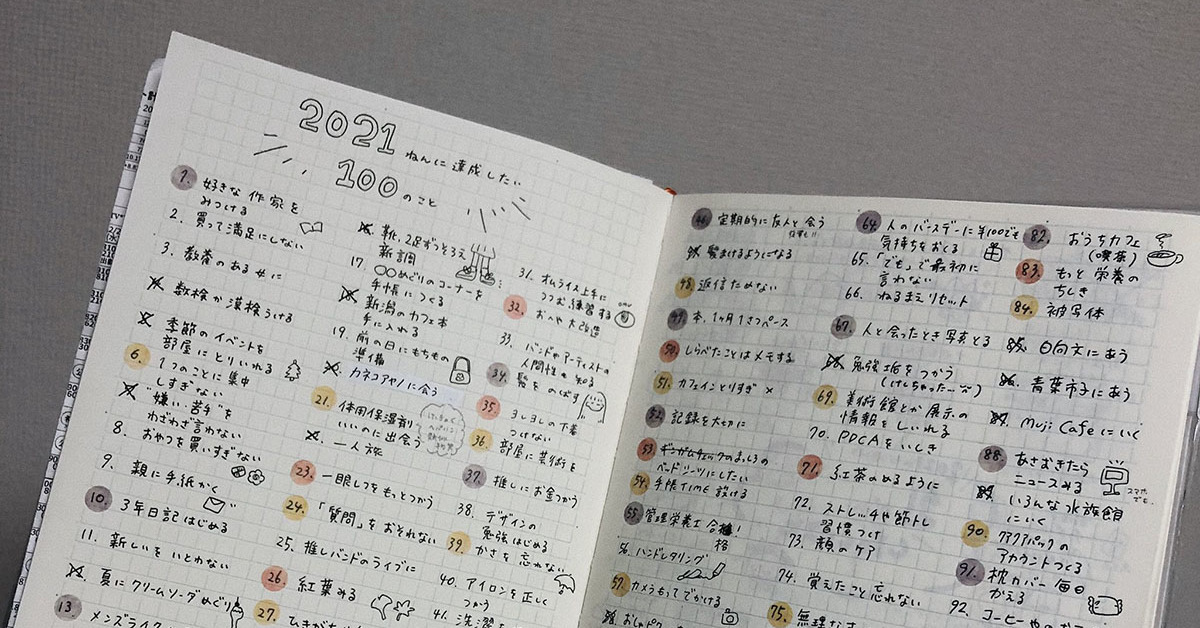 2021 ねんに達成したい
100 のこと
1. 好きな作家を
みつける
2. 買って満足にしない
3. 教養のある女に
数検か漢検うける
季節のイベントを
部屋にとりいれる
6. 1つのことに集中
しすぎない
"嫌い・苦手"を
わざわざ言わない
8. おやつを買いすぎない
9. 親に手紙かく
10. 3年日記はじめる
11. 新しいをいとわない
夏にクリームソーダめぐり
13. メンズライク
靴、2足ずつそろえ
新調
17. 〇〇めぐりのコーナーを
手帳につくる
新潟のカフェ本
手に入れる
19. 前の日にもちもの
準備
カネコアヤノに会う
21. 体用保湿剤
いいのに出会う
一人旅
23. 一眼レフをもっとつかう
24. 「質問」をおそれない
25. 推しバンドのライブに
26. 紅葉みる
27. ひきがち
31. オムライス上手に
つつむ練習する
32. おへや大改造
33. バンドやアーティストの
人間性も知る
34. 髪をのばす
35. ヨレヨレの下着
つけない
36. 部屋に芸術を
37. 推しにお金つかう
38. デザインの
勉強はじめる
39. かさを忘れない
40. アイロンを正しく
つかう
41. 洗濯
46. 定期的に友人と会う
髪まけるようになる
48. 返信ためない
49. 本、1ヶ月1さつペース
50. しらべたことはメモする
51. カフェインとりすぎ ×
52. 記録を大切に
53. ギンガムチェックのまっしろの
ベッドシーツにしたい
54. 手帳TIME設ける
55. 管理栄養士 合格!
格
56. ハンドレタリング
57. カメラもってでかける
64. 人のバースデーに¥100でも
気持ちをおくる
65. 「でも」で最初に
言わない
66. ねるまえリセット
67. 人と会ったとき写真とる
勉強垢をつかう
(けしちゃった…)
69. 美術館とか展示の
情報をしいれる
70. PDCAをいしき
71. 紅茶のめるように
72. ストレッチや筋トレ
習慣つけ
73. 顔のケア
74. 覚えたこと忘れない
75. 無理な
82. おうちカフェ
(喫茶)
83. もっと栄養の
ちしき
84. 被写体
日向文にあう
青葉市子にあう
Muji Cafeにいく
88. あさむきたら
ニュースみる
スマホ
でも。
いろんな水族館
にいく
90. アクアパックの
アカウントつくる
91. 枕カバー毎日
かえる
92. コーヒーや